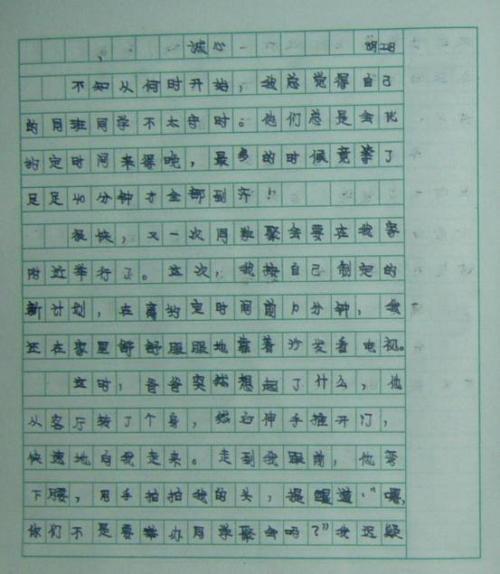 诚信
不知从何时开始，我总觉得自己
的同班同学不太守时。他们总是会比
约定时间来得晚，最多的时候竟等了
足足40分钟才全部到齐！
很快，又一次同学聚会要在我家
附近举行了。这次，我按自己制定的
新计划，在离约定时间前分钟，我
还在家里舒舒服服地靠着沙发看电视。
这时，爸爸突然想起了什么，他
从客厅转了个身，然后伸手推开门，
快速地向我走来。走到我跟前，他弯
下腰，用手拍拍我的头，提醒道：“嘿，
你们不是要举办同学聚会吗？”我迟疑